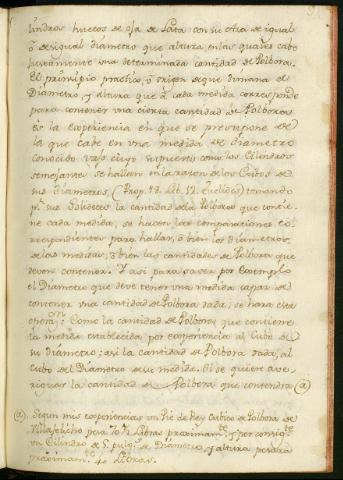 lindros huecos de oja de Lata con su otra de igual
ó desigual diametro que altura en las quales cabe
justamente una determinada cantidad de Polbora.
El principio practico, ú origen de que dimana el
Diametro, y altura que á cada medida corresponde
para contener una cierta cantidad de Polboras
es la experiencia en que se presupone de
la que cabe en una medida de Diametro
conocido
semejantes se hallan en la razon de los Cubos de
sus diametros, (Prop. 18. Lib. 12. Euclides) tomando
por sus Solideces la cantidad de la Polbora que contie-
ne cada medida, se hacen las comparaciones co-
rrespondientes para hallar, ó bien los diametros,
de las medidas, ó bien las cantidades de Polbora que
deven contener. Y asi para saver por Exemplo
el Diametro que deve tener una medida capaz de
contener una cantidad de Polbora dada; se hara esta
oper.on: Como la cantidad de Polbora que contiene
la medida establecida por experiencia al Cubo de
su diametro; asi la cantidad de Polbora dada, al
cubo del Diametro de su medida. Si se quiere ave-
riguar la cantidad de Polbora que contendra (a)
(a) Segun mis experiencias un Pie de Rey Cubico de Polbora de
Villafeliche pesa 70 Libras proximam.te y por consig.te
un Cilindro de 5 pulg.s de Diametro, y altura pesara
proximam.te 4 Libras.